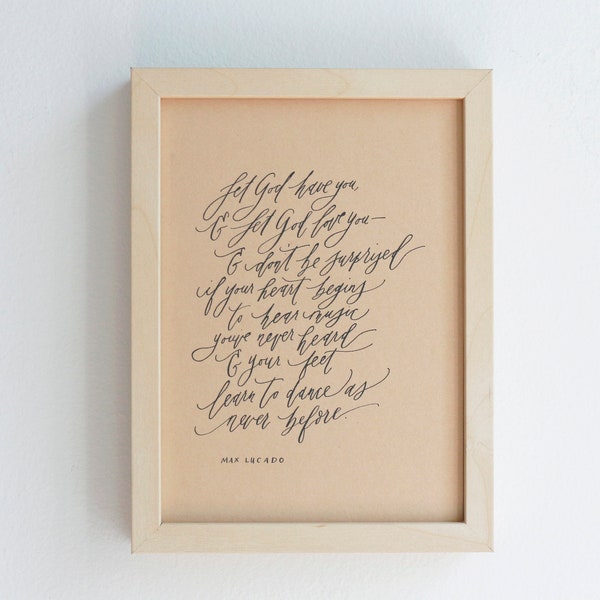 Let God have you
& let God love you—
& don't be surprised
if your heart begins
to hear music
you've never heard
& your feet
learn to dance as
never before.
MAX LUCADO